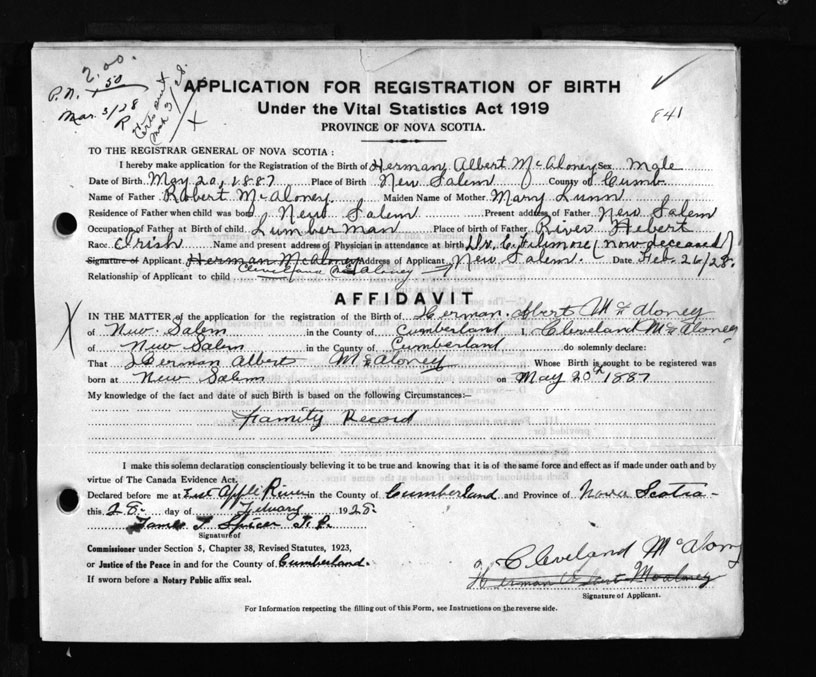 2.00.
P.N. + 50
Mar. 3/28
R
Mar 3/28.
X
841
APPLICATION FOR REGISTRATION OF BIRTH
Under the Vital Statistics Act 1919
PROVINCE OF NOVA SCOTIA.
TO THE REGISTRAR GENERAL OF NOVA SCOTIA :
I hereby make application for the Registration of the Birth of Herman Albert McAloney Sex Male
Date of Birth May 20, 1887 Place of Birth New Salem County of Cumb.
Name of Father Robert McAloney. Maiden Name of Mother Mary Lunn
Residence of Father when child was born New Salem Present address of Father New Salem
Occupation of Father at Birth of child. Lumberman Place of birth of Father River Hebert
Race Irish Name and present address of Physician in attendance at birth Dr. C. Filmore (now deceased)
Signature of Applicant Herman McAloney Address of Applicant New Salem. Date Feb. 26/28.
Cleveland McAloney
Relationship of Applicant to child
AFFIDAVIT
X
IN THE MATTER of the application for the registration of the Birth of Herman Albert McAloney
of New Salem in the County of Cumberland I, Cleveland McAloney
of New Salem in the County of Cumberland do solemnly declare:
That Herman Albert McAloney Whose Birth is sought to be registered was
born at New Salem on May 20th 1887
My knowledge of the fact and date of such Birth is based on the following Circumstances:—
Family Record
I make this solemn declaration conscientiously believing it to be true and knowing that it is of the same force and effect as if made under oath and by
virtue of The Canada Evidence Act.
Declared before me at East Apple River in the County of Cumberland and Province of Nova Scotia
this 28 day of February 1928
James T. Spicer J.P.
Signature of
Commissioner under Section 5, Chapter 38, Revised Statutes, 1923,
or Justice of the Peace in and for the County of Cumberland.
If sworn before a Notary Public affix seal.
Cleveland McAloney
Herman Albert McAloney
Signature of Applicant.
For Information respecting the filling out of this Form, see Instructions on the reverse side.